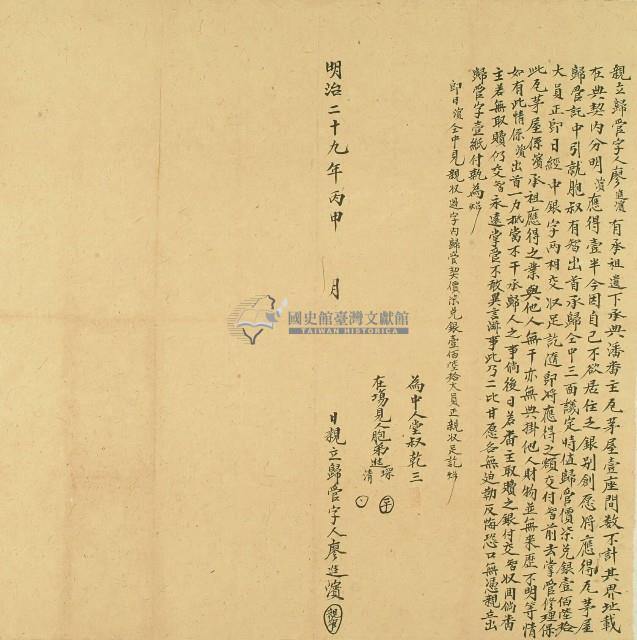 親立歸管字人廖進濱有承祖遺下承典潘番主瓦茅屋壹座間數不計其界址載
在典契內分明濱應得壹半今因自己不欲居住乏銀別創愿將應得瓦茅屋
歸管託中引就胞叔有智出首承歸仝中三面議定時值歸管價柒兌銀壹佰陸拾
大員正即日經中銀字兩相交收足訖隨即將應得之額交付智前去掌管修理保
此瓦茅屋係濱承祖應得之業與他人無干亦無典掛他人財物並無來歷不明等情
如有此情係濱出首一力抵當不干承歸人之事倘後日若番主取贖之銀付交智收回倘番
主若無取贖仍交智永遠掌管不敢異言滋事此乃二比甘愿各無迫勒反悔恐口無憑親立出
歸管字壹紙付執為炤
即日濱仝中見親收過字內歸管契價柒兌銀壹佰陸拾大員正親收足訖炤
為中人堂叔乾三
在場見人胞弟進琛
清
明治二十九年丙申 月 日親立歸管字人廖進濱
國史館臺灣文獻館
TAIWAN HISTORICA